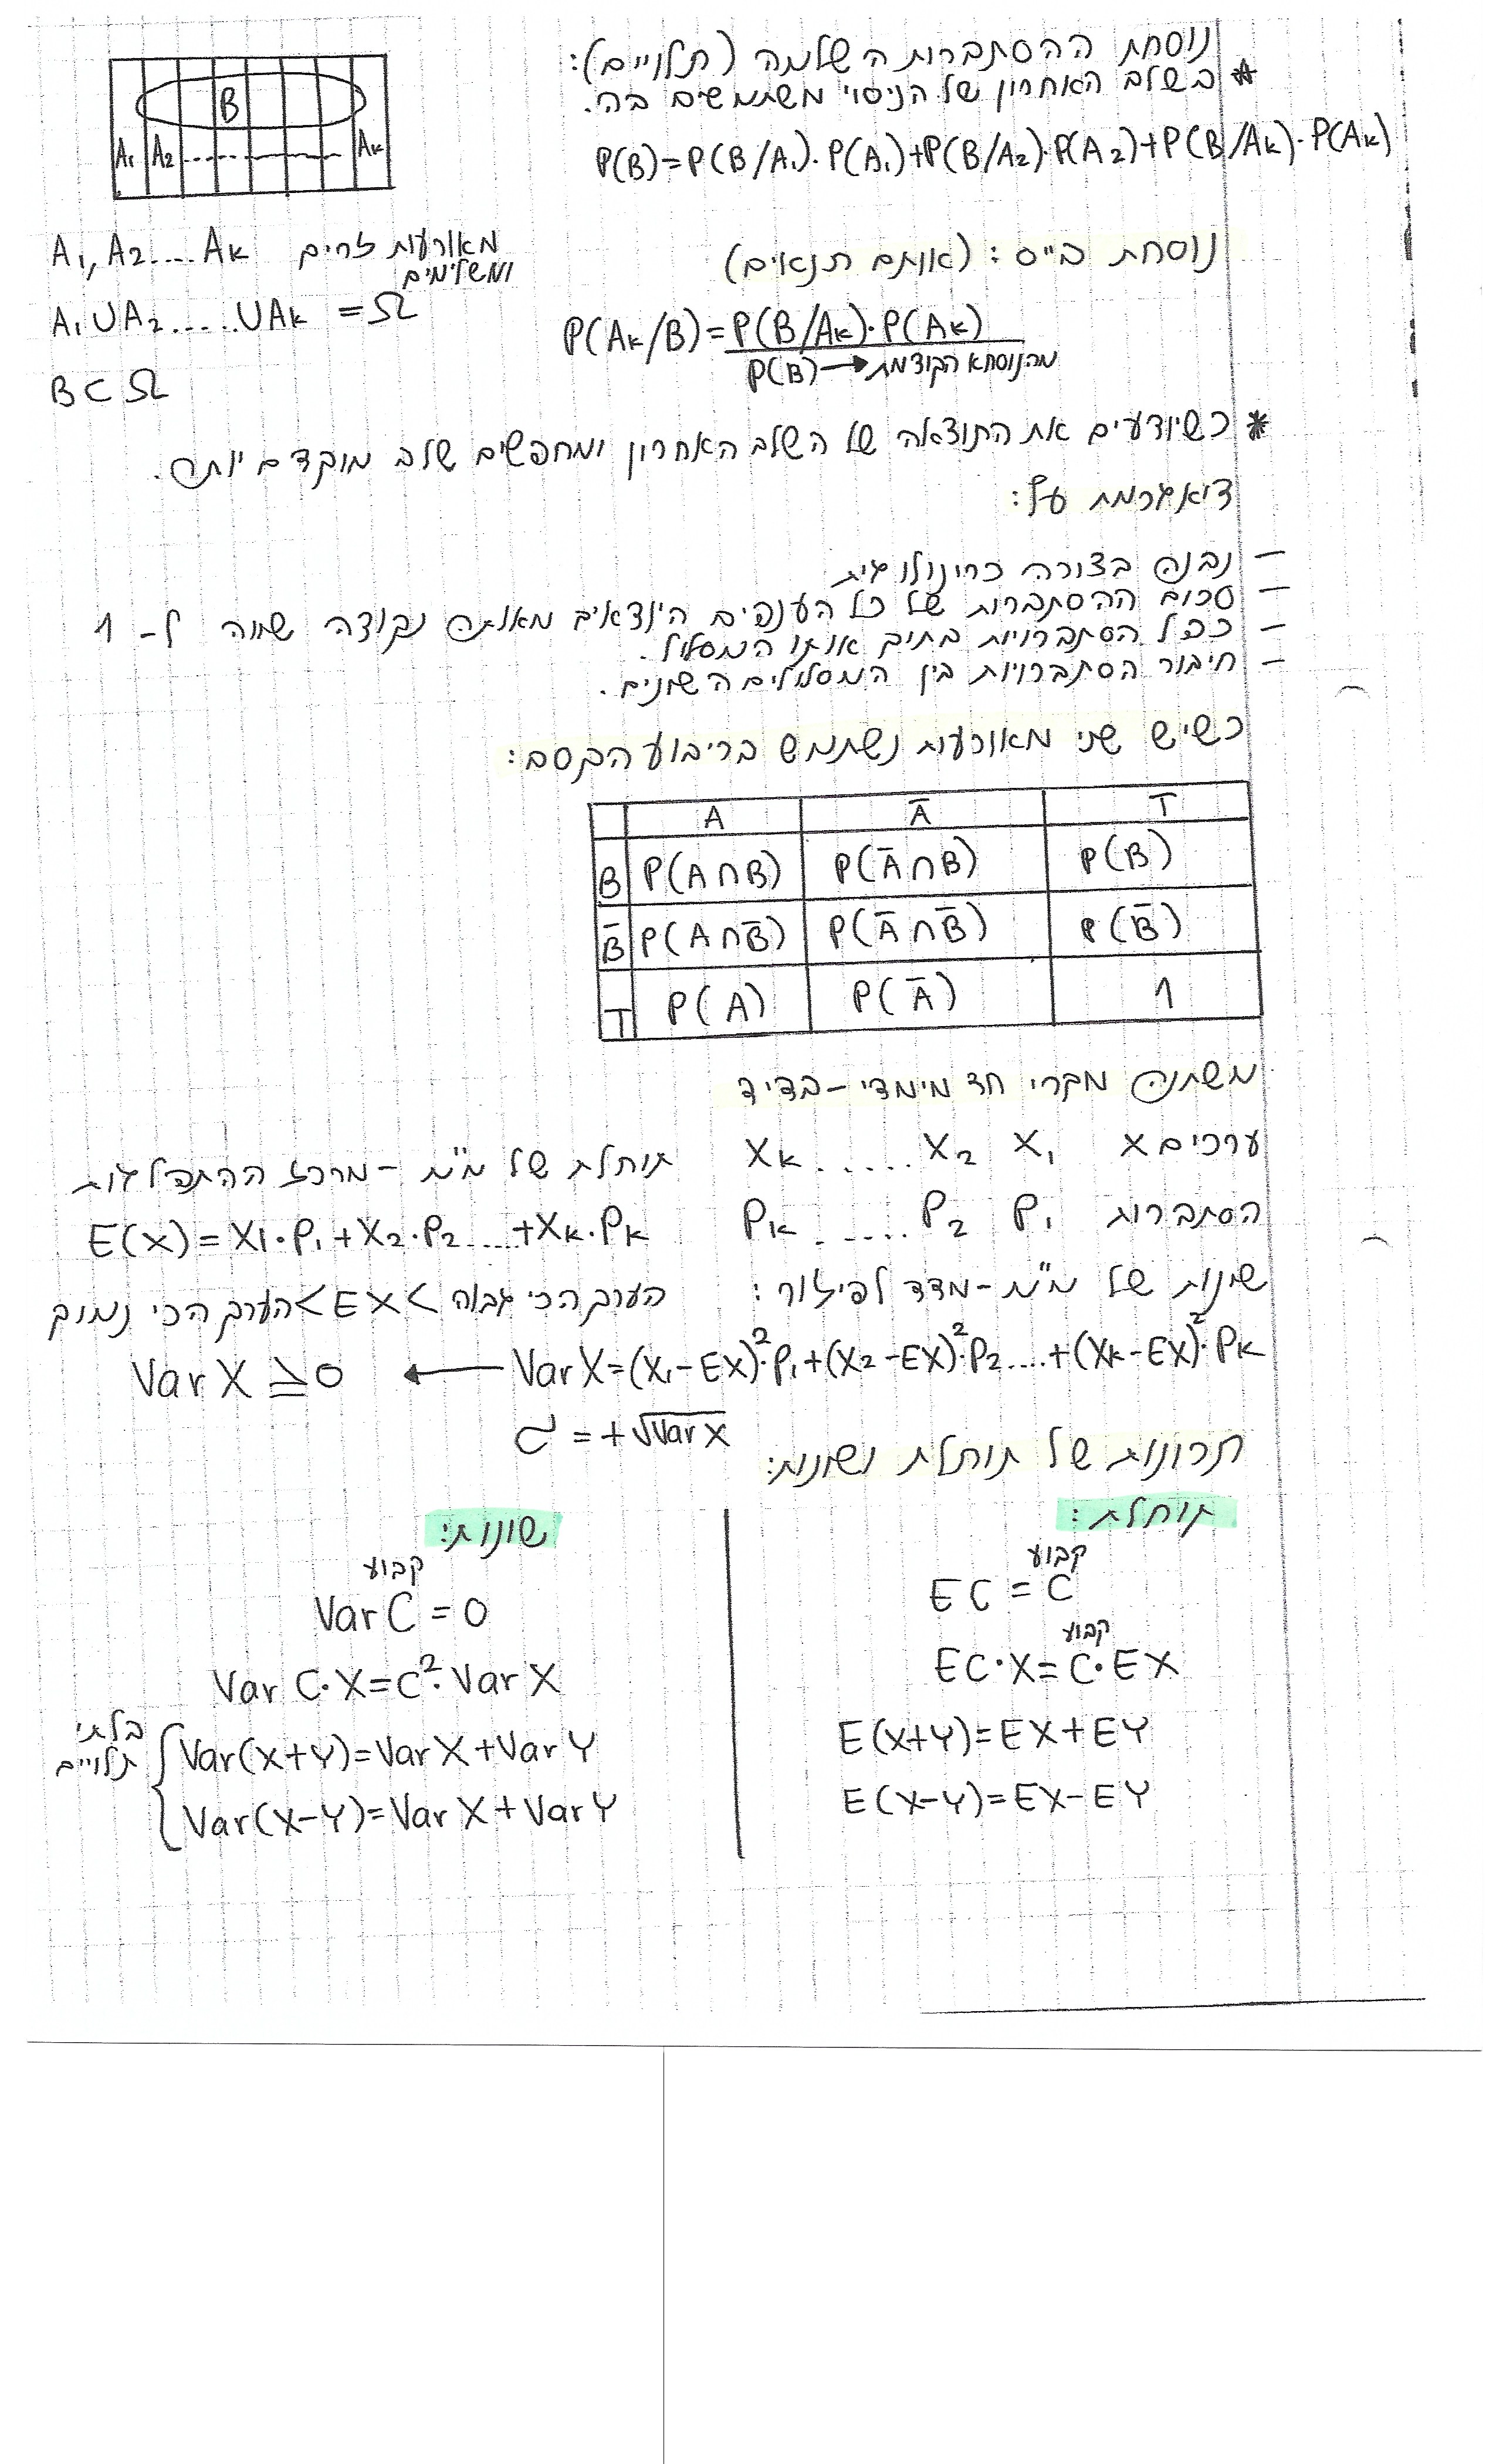 נוסחת ההסתברות השלמה (תלויים):
* בשלב האחרון של הניסוי משתמשים בה.
P(B)=P(B/A₁)·P(A₁)+P(B/A₂)·P(A₂)+P(B/Aₖ)·P(Aₖ)
B
A₁ A₂ ------- Aₖ
A₁, A₂.... Aₖ מאורעות זרים
ומשלימים
A₁∪A₂.....∪Aₖ = Ω
B⊂Ω
נוסחת בייס: (אותם תנאים)
P(Aₖ/B)=P(B/Aₖ)·P(Aₖ)
P(B)→מהנוסחא הקודמת
* כשיודעים את התוצאה של השלב האחרון ומחפשים שלב מוקדם יותר.
דיאגרמת עץ:
- נבנה בצורה כרונולוגית
- סכום ההסתברות של כל הענפים היוצאים מאותה נקודה שווה ל- 1
- כפל הסתברויות בתוך אותו המסלול.
- חיבור הסתברויות בין המסלולים השונים.
כשיש שני מאורעות נשתמש בריבוע הקסם:
A Ā T
B P(A∩B) P(Ā∩B) P(B)
B̄ P(A∩B̄) P(Ā∩B̄) P(B̄)
T P(A) P(Ā) 1
משתנה מקרי חד מימדי-בדיד
ערכים X X₁ X₂ ...... Xₖ
הסתברות P₁ P₂ ...... Pₖ
תוחלת של מ"מ - מרכז ההתפלגות
E(X)=X₁·P₁+X₂·P₂....+Xₖ·Pₖ
הערך הכי גבוה > EX > הערך הכי נמוך
שונות של מ"מ-מדד לפיזור:
VarX=(X₁-EX)²·P₁+(X₂-EX)²·P₂....+(Xₖ-EX)²·Pₖ
← VarX ≥ 0
σ = +√VarX
תכונות של תוחלת ושונות:
תוחלת:
קבוע
EC = C
קבוע
EC·X=C·EX
E(X+Y)=EX+EY
E(X-Y)=EX-EY
שונות:
קבוע
VarC = 0
VarC·X=C²·VarX
בלתי
תלויים
Var(X+Y)=VarX+VarY
Var(X-Y)=VarX+VarY